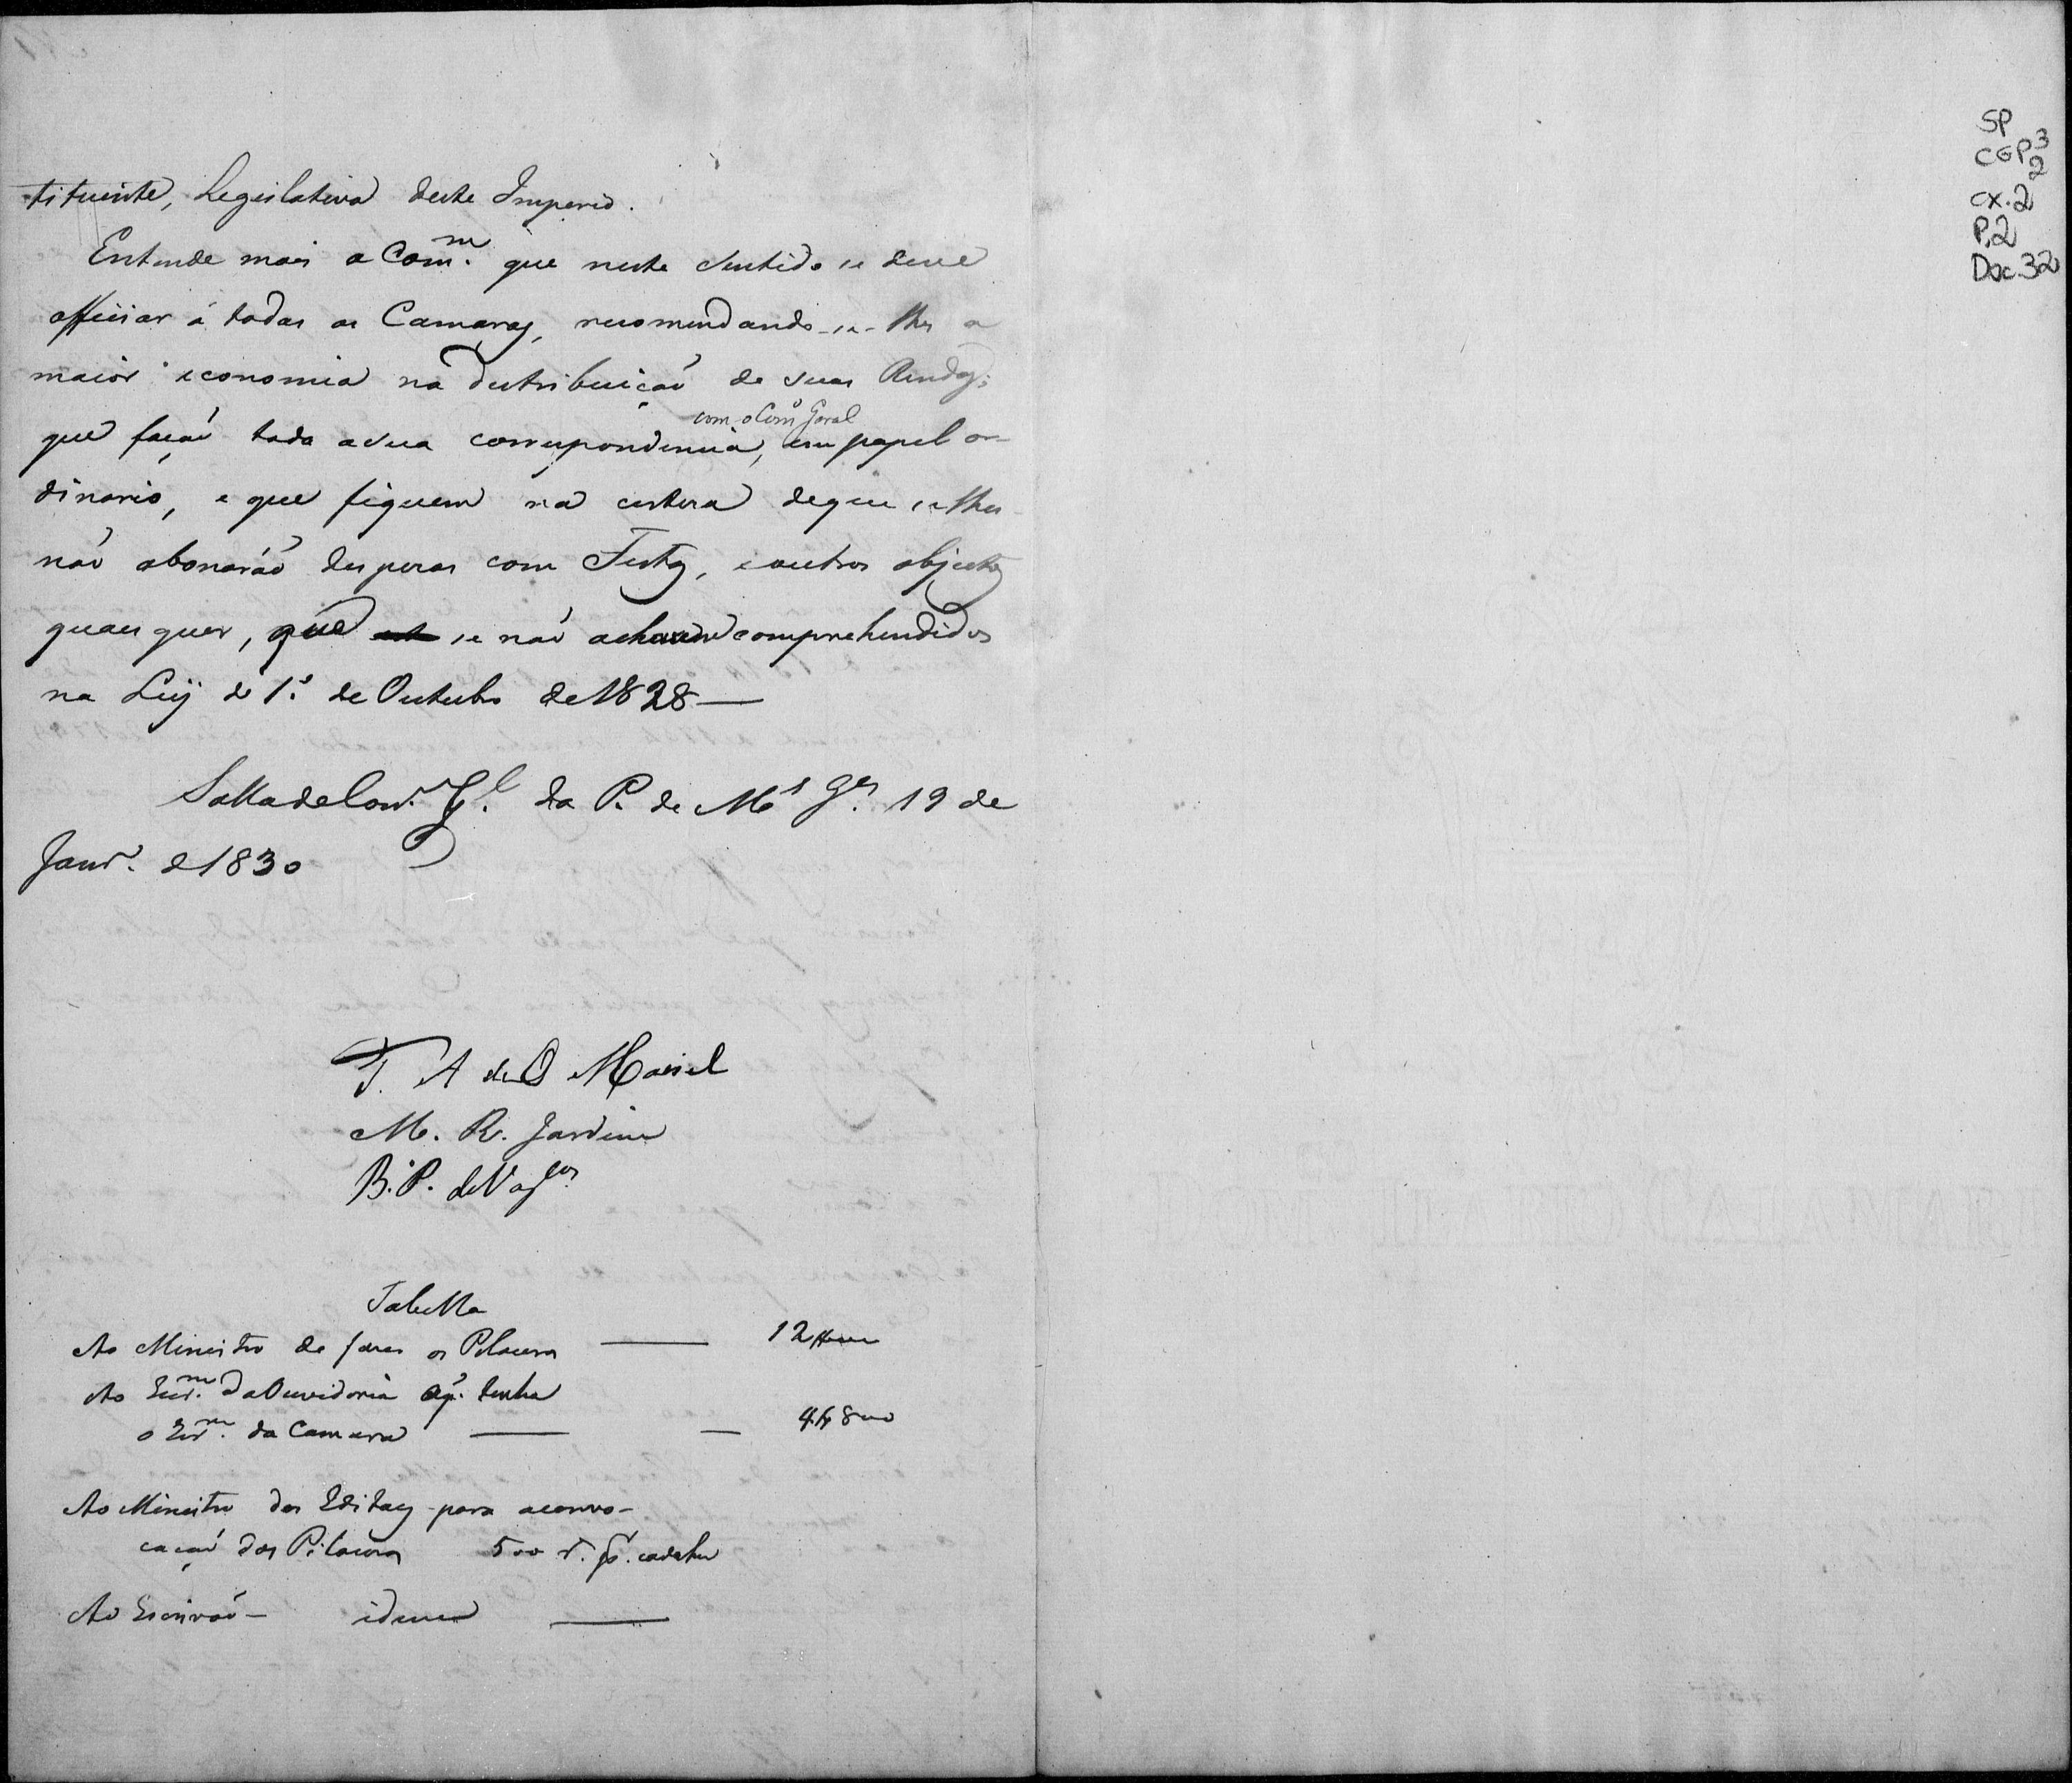 tituinte, Legislativa deste Imperio.
Entende mais a Com.m que neste sentido se deve
officiar á todas as Camaras, recomendando-se-lhes a
maior economia na distribuiçaõ de suas Rendas;
com o Com.o Geral
que façaõ toda a sua correspondencia, em papel or-
dinario, e que fiquem na certeza de que se lhes
naõ abonaráõ despezas com Festas, e outros objectos
quaes quer, que se naõ achaõ comprehendidos
na Ley do 1.º de Outubro de 1828 —
Salla do Con.º G.l da P. de M.s G.es 19 de
Janr.º de 1830
T. A de O Maciel
M. R. Jardim
B. P. de Vas.los
Tabella
Ao Ministro de fazer os Pilouros —— 12
Ao Escr.m da Ouvidoria q.' tenha
o Escr.m da Camara —— — 4$800
Ao Ministro dos Editaes para a convo-
caçaõ dos Pilouros 500 r. p.r cada hum
Ao Escrivaõ — idem ——
SP
CGP3
2
cx.2
P.2
Doc.32